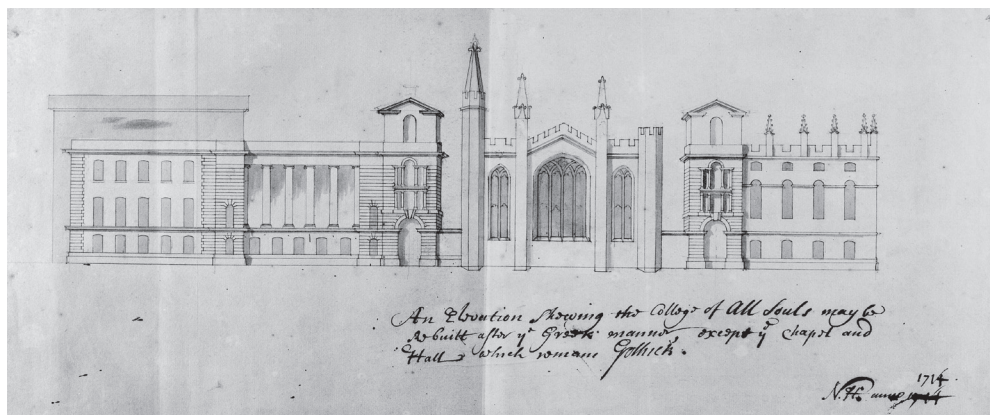 An Elevation Shewing the College of All Souls may be
Rebuilt after yᵉ Greek manner except yᵉ Chapel and
Hall which remains Gothick.
1714
N.H.